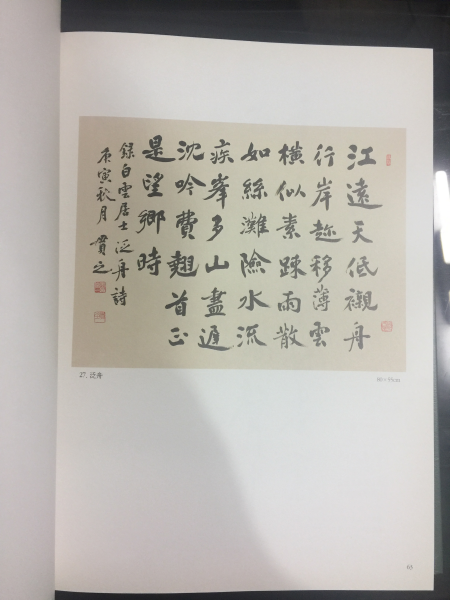 江遠天低襯舟
行岸趂移薄雲
橫似素踈雨散
如絲灘險水流
疾峯多山盡遲
沈吟費翹首正
是望鄉時
錄白雲居士泛舟詩
庚寅秋月貫之
27. 泛舟